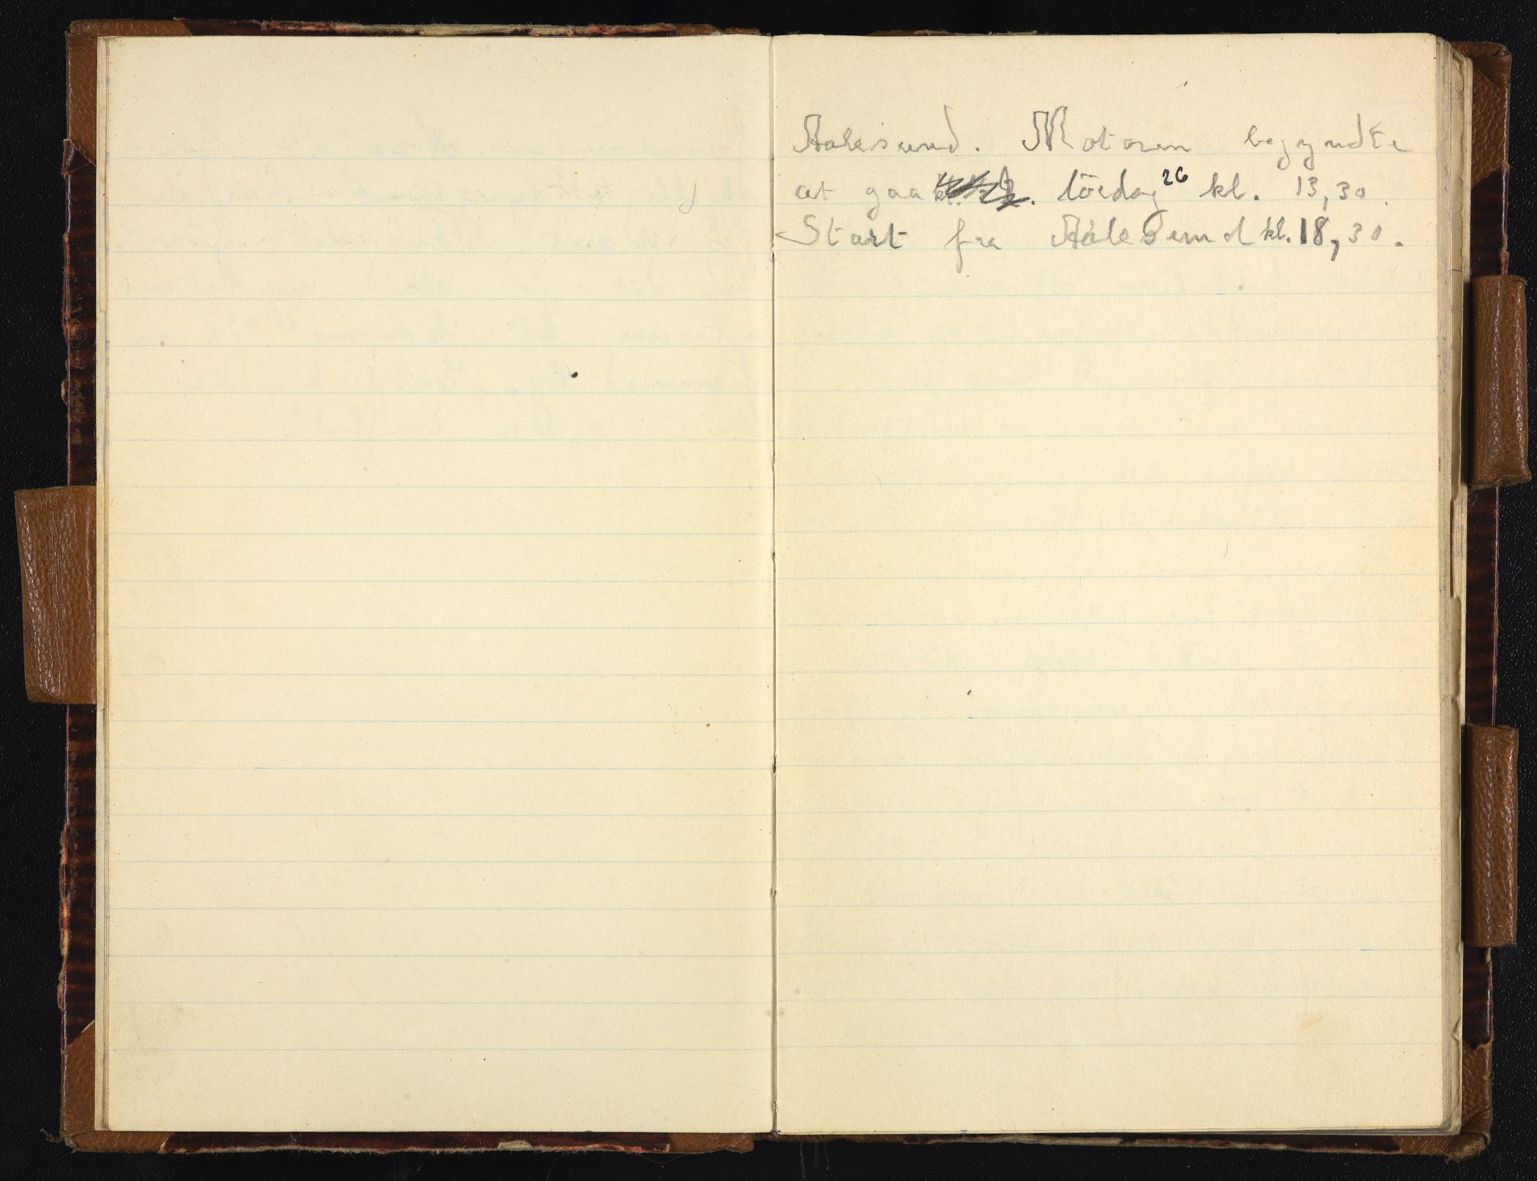 Aalesund. Motoren begyndte
at gaa lördag 26 kl. 13,30.
Start fra Aalesund kl. 18,30.